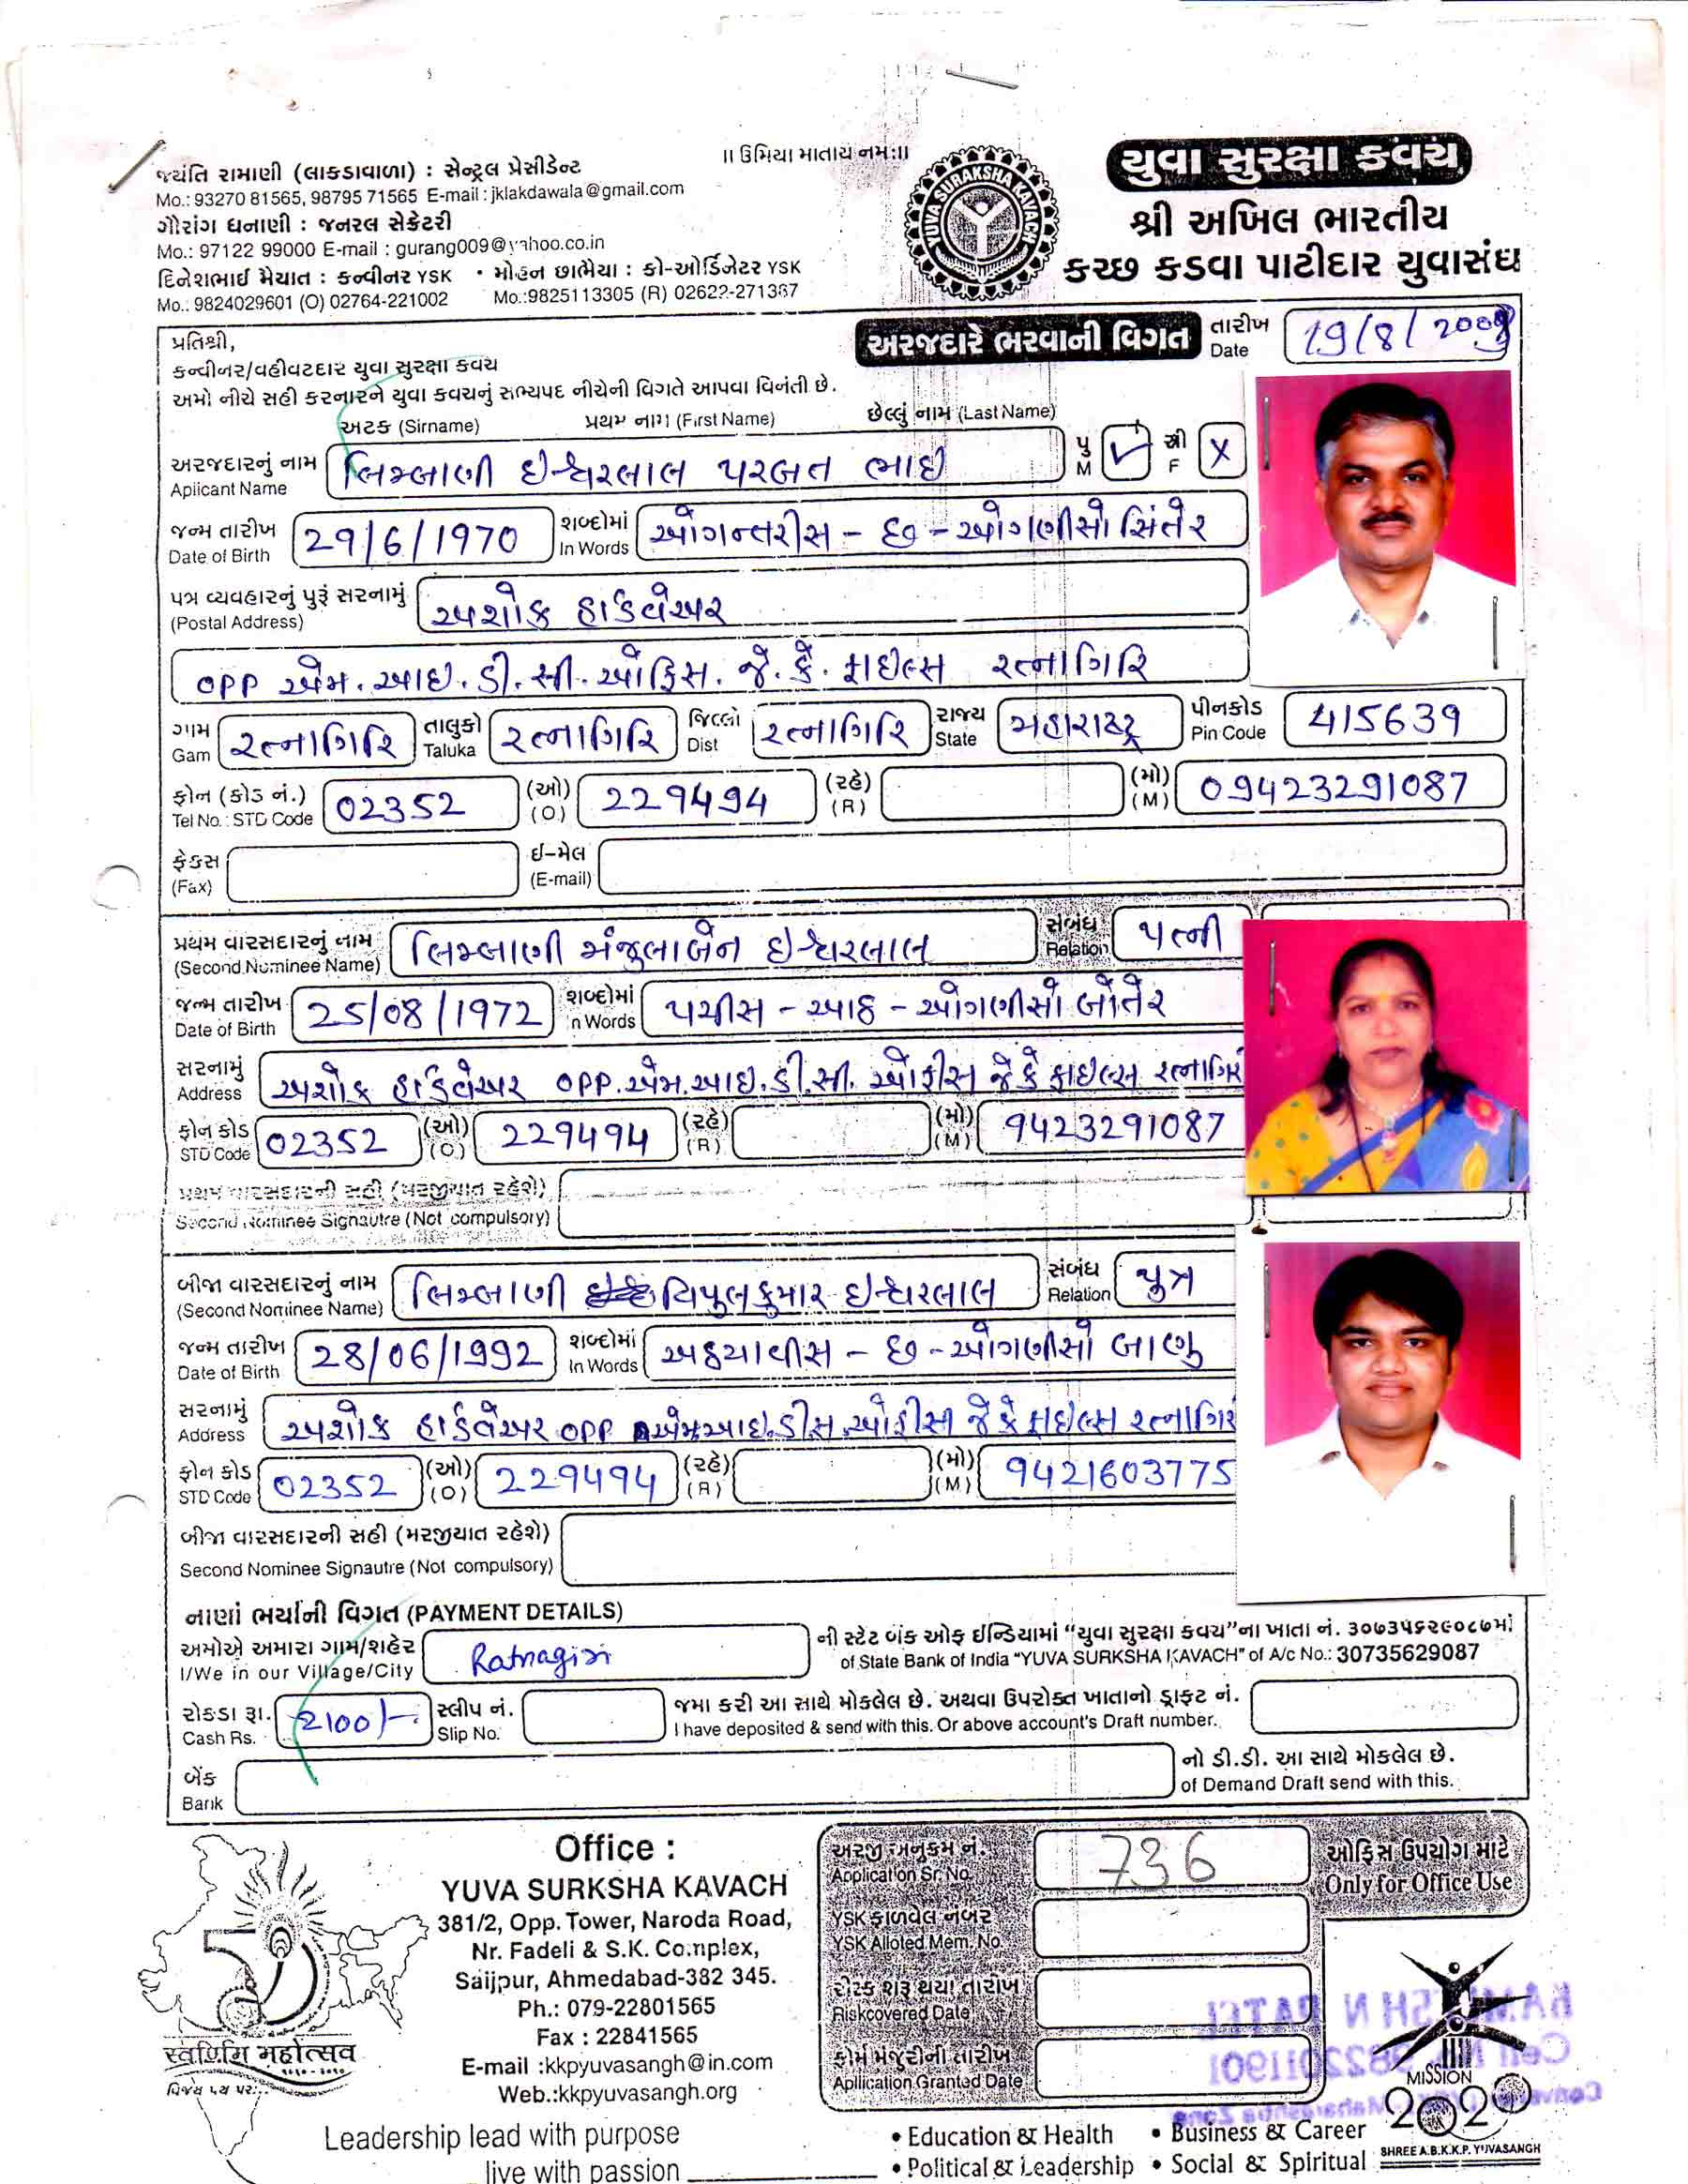 ॥ ઉમિયા માતાય નમઃ॥
જયંતિ રામાણી (લાકડાવાળા) : સેન્ટ્રલ પ્રેસીડેન્ટ
Mo.: 93270 81565, 98795 71565 E-mail : jklakdawala@gmail.com
ગૌરાંગ ધનાણી : જનરલ સેક્રેટરી
Mo.: 97122 99000 E-mail : gurang009@yahoo.co.in
દિનેશભાઈ મૈયાત : કન્વીનર YSK • મોહન છાભૈયા : કો-ઓર્ડિનેટર YSK
Mo.: 9824029601 (O) 02764-221002 Mo.:9825113305 (R) 02622-271367
YUVA SURAKSHA KAVACH
યુવા સુરક્ષા કવચ
શ્રી અખિલ ભારતીય
કચ્છ કડવા પાટીદાર યુવાસંઘ
પ્રતિશ્રી,
અરજદારે ભરવાની વિગત તારીખ Date 19/8/2009
કન્વીનર/વહીવટદાર યુવા સુરક્ષા કવચ
અમો નીચે સહી કરનારને યુવા કવચનું સભ્યપદ નીચેની વિગતે આપવા વિનંતી છે.
અટક (Sirname) પ્રથમ નામ (First Name) છેલ્લું નામ (Last Name)
અરજદારનું નામ Aplicant Name લિમ્બાણી ઈશ્વરલાલ પરબત ભાઈ પુ M ✓ સ્ત્રી F X
જન્મ તારીખ Date of Birth 29/6/1970 શબ્દોમાં In Words ઓગન્તરીસ - છ - ઓગણીસો સિંતેર
પત્ર વ્યવહારનું પુરૂં સરનામું (Postal Address) અશોક હાર્ડવેઅર
OPP એમ. આઈ. ડી. સી. ઓફિસ. જે. કે. ફાઈલ્સ રત્નાગિરિ
ગામ Gam રત્નાગિરિ તાલુકો Taluka રત્નાગિરિ જિલ્લો Dist રત્નાગિરિ રાજ્ય State મહારાષ્ટ્ર પીનકોડ Pin Code 415639
ફોન (કોડ નં.) Tel No.: STD Code 02352 (ઓ) (O.) 229494 (રહે) (R) (મો) (M) 09423291087
ફેકસ (Fax) ઈ-મેલ (E-mail)
પ્રથમ વારસદારનું નામ (Second Nominee Name) લિમ્બાણી મંજુલાબેન ઈશ્વરલાલ સંબંધ Relation પત્ની
જન્મ તારીખ Date of Birth 25/08/1972 શબ્દોમાં n Words પચીસ - આઠ - ઓગણીસો બોંતેર
સરનામું Address અશોક હાર્ડવેઅર OPP. એમ. આઈ. ડી. સી. ઓફીસ જે કે ફાઈલ્સ રત્નાગિરિ
ફોન કોડ STD Code 02352 (ઓ) (O) 229494 (રહે) (R) (મો) (M) 9423291087
પ્રથમ વારસદારની સહી (મરજીયાત રહેશે)
Second Nominee Signautre (Not compulsory)
બીજા વારસદારનું નામ (Second Nominee Name) લિમ્બાણી વિપુલકુમાર ઈશ્વરલાલ સંબંધ Relation પુત્ર
જન્મ તારીખ Date of Birth 28/06/1992 શબ્દોમાં In Words અઠયાવીસ - છ - ઓગણીસો બાણુ
સરનામું Address અશોક હાર્ડવેઅર OPP એમ આઈ ડી સી ઓફીસ જે કે ફાઈલ્સ રત્નાગિરિ
ફોન કોડ STD Code 02352 (ઓ) (O) 229494 (રહે) (R) (મો) (M) 9421603775
બીજા વારસદારની સહી (મરજીયાત રહેશે)
Second Nominee Signautre (Not compulsory)
નાણાં ભર્યાની વિગત (PAYMENT DETAILS)
અમોએ અમારા ગામ/શહેર Ratnagiri ની સ્ટેટ બેંક ઓફ ઈન્ડિયામાં “યુવા સુરક્ષા કવચ”ના ખાતા નં. ૩૦૭૩૫૬૨૯૦૮૭માં
I/We in our Village/City of State Bank of India “YUVA SURKSHA KAVACH” of A/c No.: 30735629087
રોકડા રૂા. Cash Rs. 2100/- સ્લીપ નં. Slip No. જમા કરી આ સાથે મોકલેલ છે. અથવા ઉપરોક્ત ખાતાનો ડ્રાફ્ટ નં.
I have deposited & send with this. Or above account's Draft number.
બેંક Bank નો ડી.ડી. આ સાથે મોકલેલ છે.
of Demand Draft send with this.
Office :
YUVA SURKSHA KAVACH
381/2, Opp. Tower, Naroda Road,
Nr. Fadeli & S.K. Complex,
Saijpur, Ahmedabad-382 345.
Ph.: 079-22801565
Fax : 22841565
E-mail :kkpyuvasangh@in.com
Web.:kkpyuvasangh.org
50
स्वर्णिम महोत्सव
અરજી અનુક્રમ નં. Application Sr. No. 736
ઓફિસ ઉપયોગ માટે
Only for Office Use
YSK ફાળવેલ નંબર
YSK Alloted Mem. No.
રીસ્ક શરૂ થયા તારીખ
Riskcovered Date
ફોર્મ મંજુરીની તારીખ
Apllication Granted Date
MISSION
2020
SHREE A.B.K.K.P. YUVASANGH
Leadership lead with purpose
live with passion
• Education & Health • Business & Career
• Political & Leadership • Social & Spiritual